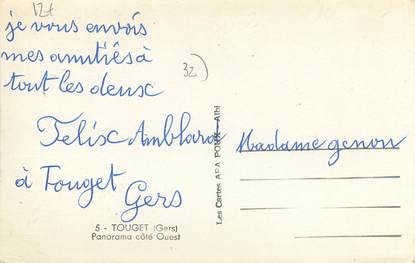 12t
je vous envois
mes amitiés à
tout les deux
32)
Felix Amblard
à Touget
Gers
5 - TOUGET (Gers)
Panorama côté Ouest
Les Cartes APA POUX - Albi
Madame genou